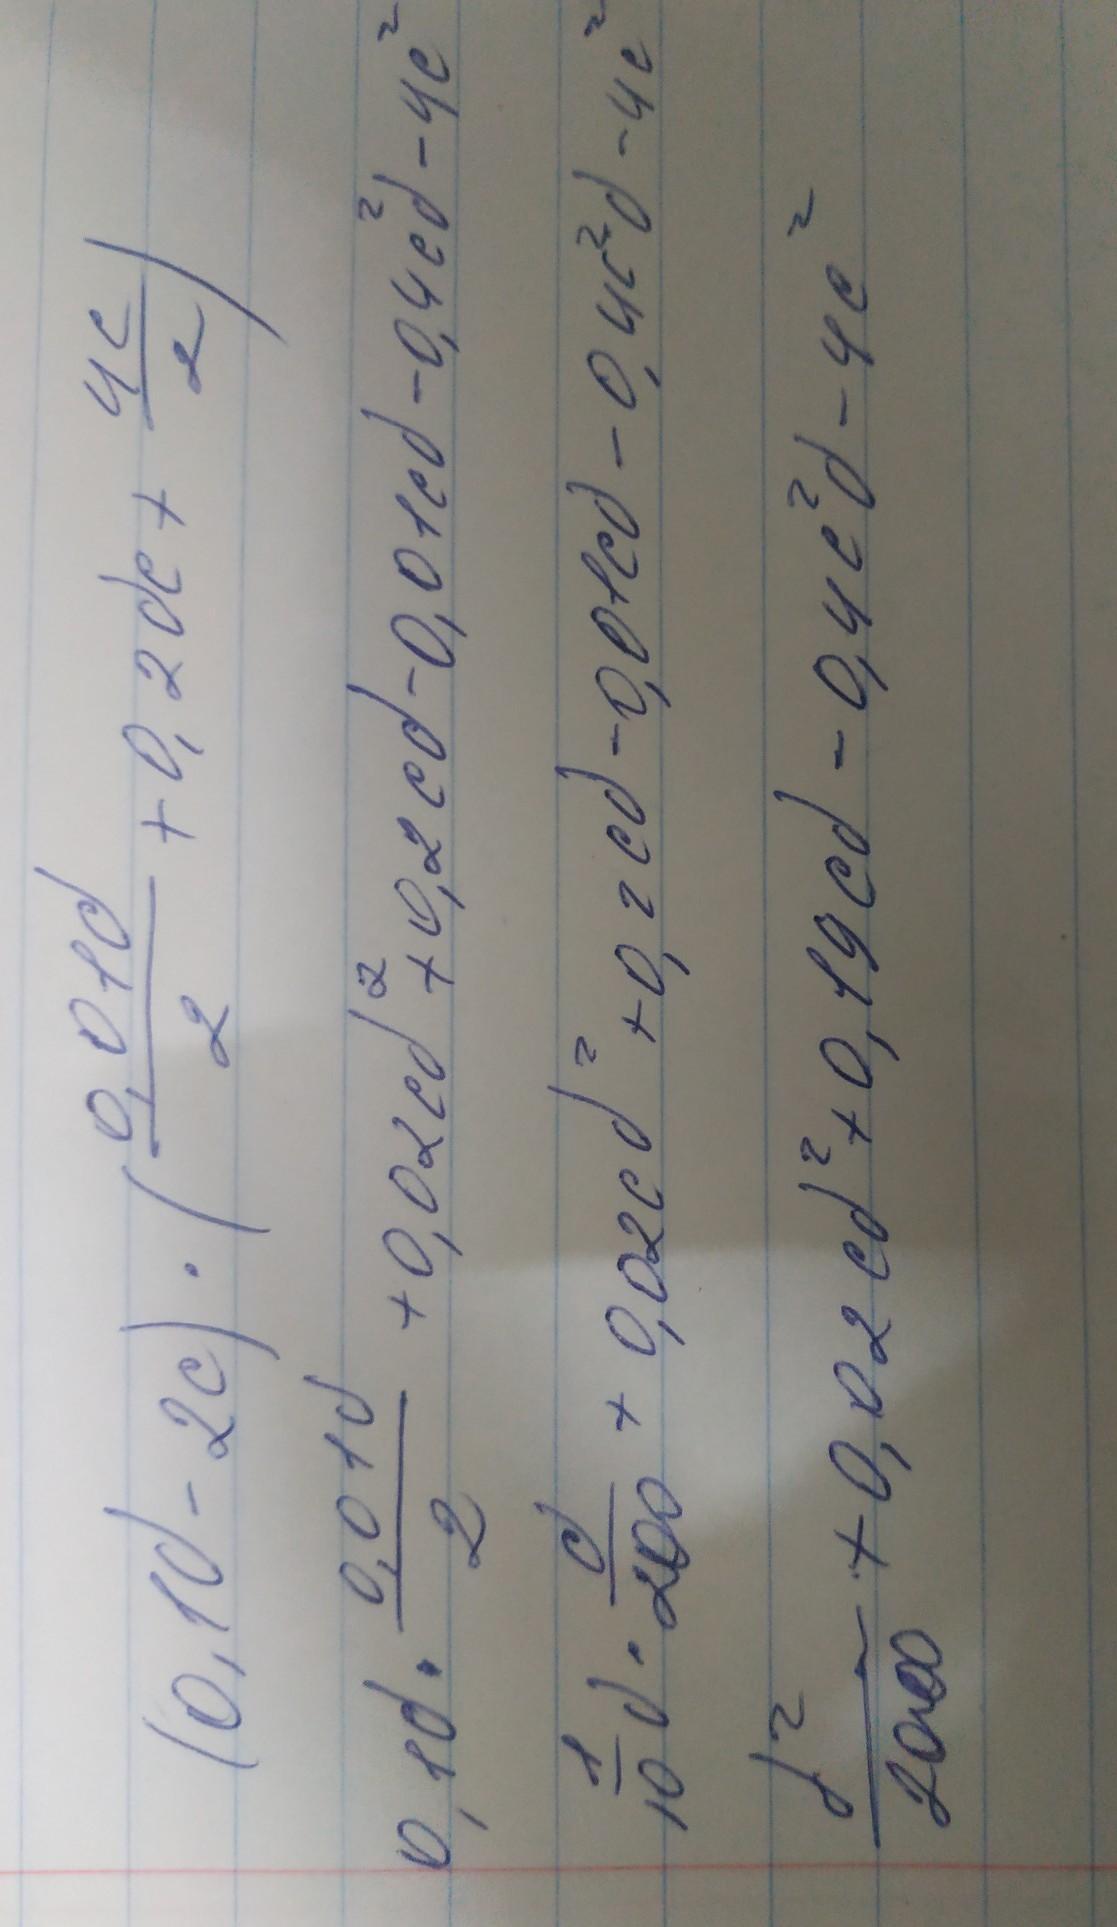 (0,1d - 2c) · (0,01d/2 + 0,2dc + 4c/2)
0,1d · 0,01d/2 + 0,02cd² + 0,2cd - 0,01cd - 0,4c²d - 4c²
1/10 d · d/200 + 0,02cd² + 0,2cd - 0,01cd - 0,4c²d - 4c²
d²/2000 + 0,02cd² + 0,19cd - 0,4c²d - 4c²